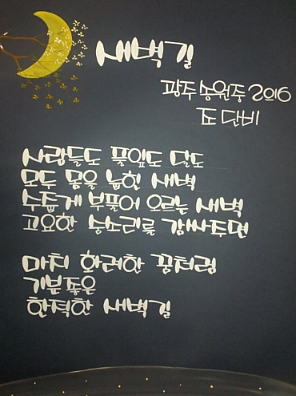 새벽길
광주 송원중 2의6
조 단비
사람들도 풀잎도 달도
모두 몸을 눕힌 새벽
수줍게 부풀어 오르는 새벽
고요한 숨소리를 감싸주면
마치 화려한 꿈처럼
기분좋은
한적한 새벽길